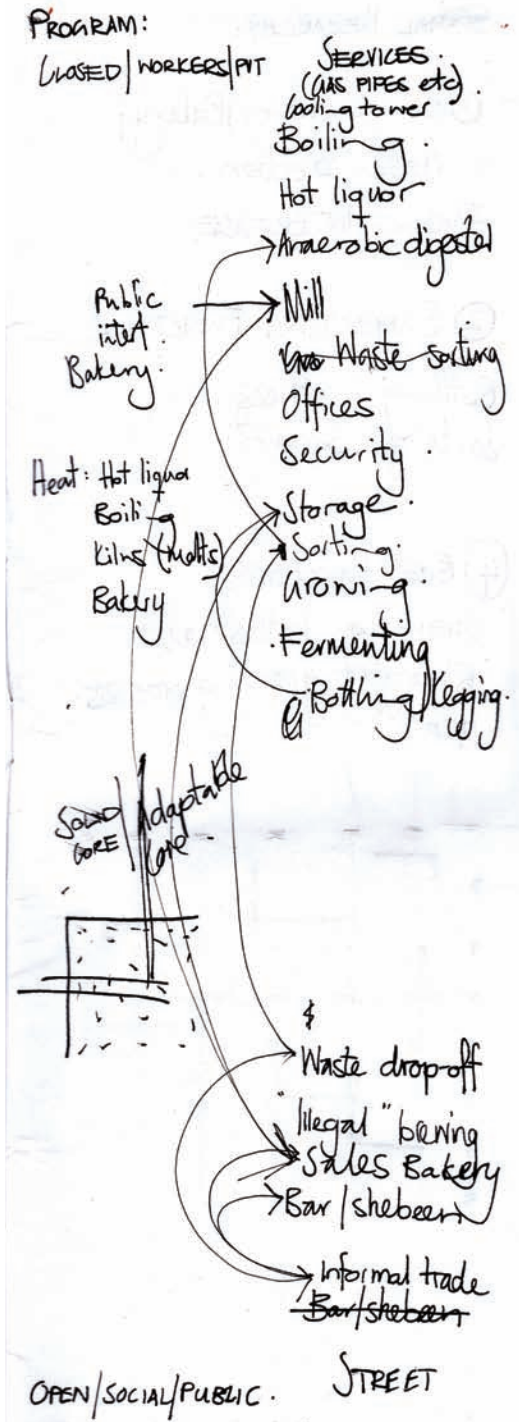 PROGRAM:
CLOSED/WORKERS/PVT
SERVICES.
(GAS PIPES etc)
Cooling tower
Boiling
Hot liquor
+
Anaerobic digester
Public
interf.
Bakery.
Mill
Waste sorting
Offices
Security.
Heat: Hot liquor
+
Boiling
Kilns (malts)
Bakery
Storage.
Sorting.
Growing.
Fermenting
Bottling/Kegging.
SOLID CORE
Adaptable core
$
Waste drop-off
"Illegal" brewing
Sales Bakery
Bar/shebeen
Informal trade
Bar/shebeen
STREET
OPEN/SOCIAL/PUBLIC.